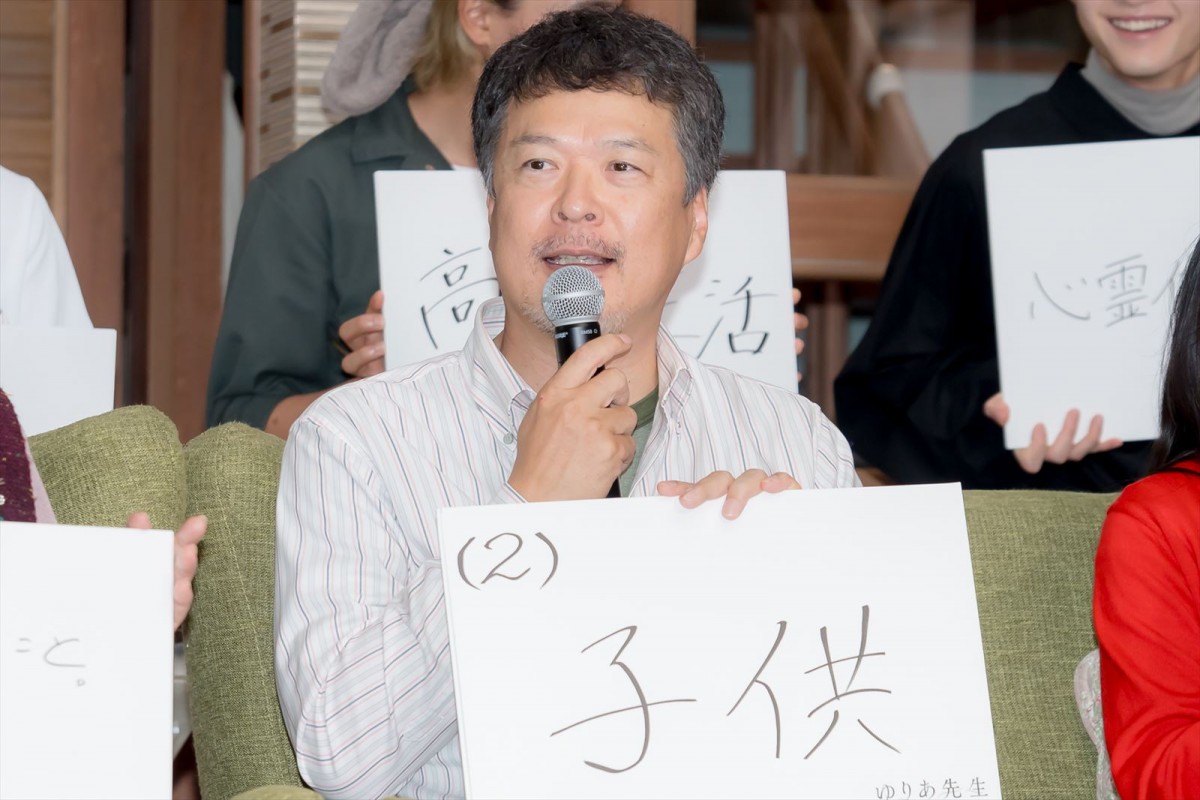 高
活
心霊
(2)
子供
こと。
ゆりあ先生